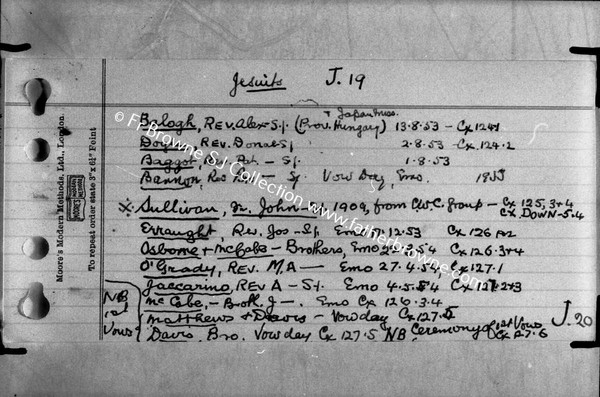 Jesuits J.19
+ Japan Miss.
Balogh, Rev. Alex S.j. (Prov. Hungary) 13.8.53 - Cx 124.1
Rev. Donal S.j 2.8.53 - Cx 124.2
Baggot, - S.j. 1.8.53
Bannon, - S.j Vow Day, Emo.
Sullivan, Fr. John 1909, from C.W.C. Group - Cx 125, 3+4
Cx DOWN - 5.4
Erraught, Rev. Jos - S.j. 12.53 Cx 126
Osborne + McCabe - Brothers, Emo 54 Cx 126.3+4
O'Grady, Rev. M.A - Emo 27.4.54, Cx 127.1
Jaccarino, Rev A - S.j. Emo 4.5.54 Cx 127.2+3
McCabe, - Broth. J -. Emo Cx 126.3.4
Matthews + Davis - Vow day Cx 127.5
Davis, Bro. Vow day Cx 127.5 NB. Ceremony of 1st Vows
Cx 127.6
J.20
NB
1st
Vows
Moore's Modern Methods, Ltd., London.
To repeat order state 3" x 6½" Feint
© Fr Browne SJ Collection www.fatherbrowne.com